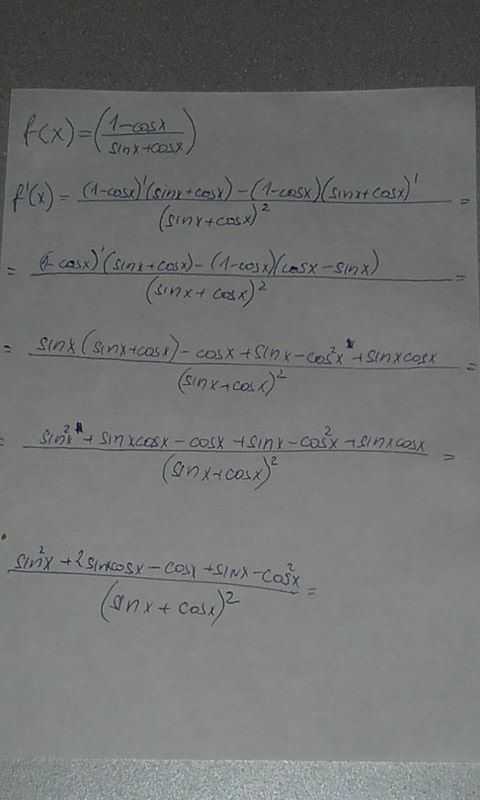 f(x) = ((1-cosx)/(sinx+cosx))
f'(x) = ((1-cosx)'(sinx+cosx) - (1-cosx)(sinx+cosx)')/(sinx+cosx)² =
= ((1-cosx)'(sinx+cosx) - (1-cosx)(cosx-sinx))/(sinx+cosx)² =
= (sinx(sinx+cosx) - cosx + sinx - cos²x + sinxcosx)/(sinx+cosx)² =
= (sin²x + sinxcosx - cosx + sinx - cos²x + sinxcosx)/(sinx+cosx)² =
(sin²x + 2sinxcosx - cosx + sinx - cos²x)/(sinx+cosx)² =